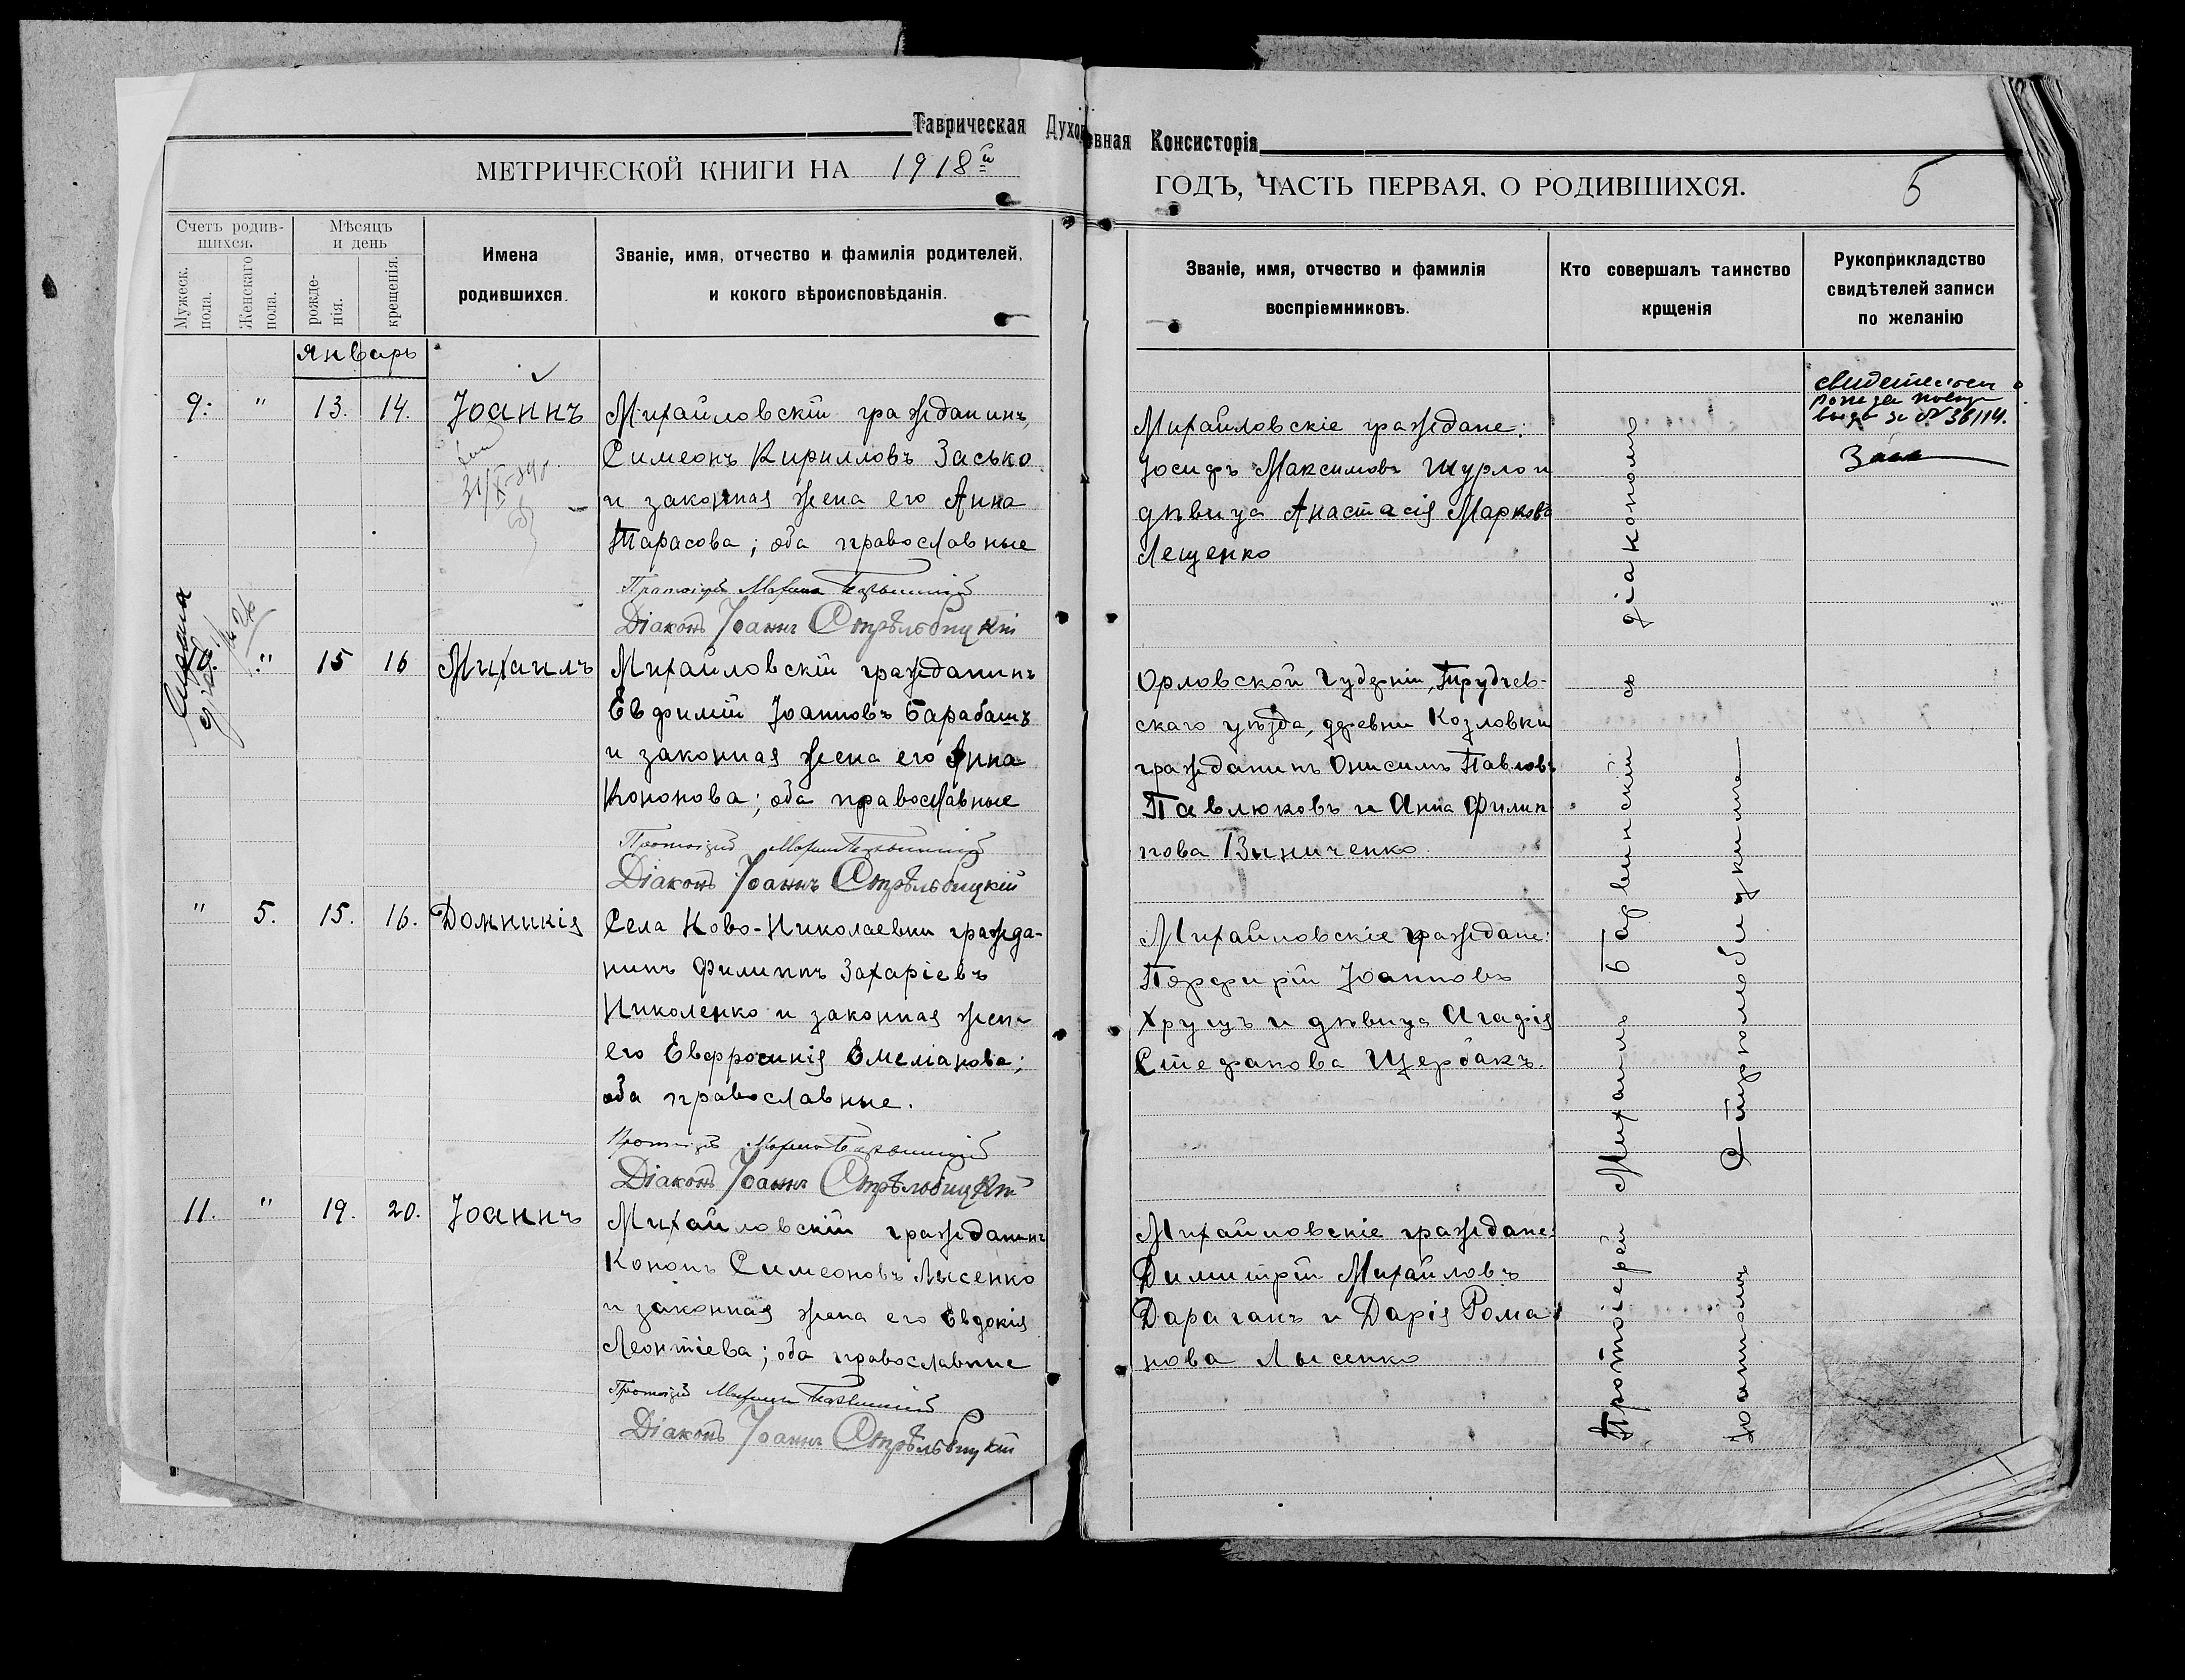 Таврическая Духовная Консисторія
МЕТРИЧЕСКОЙ КНИГИ НА 1918й
ГОДЪ, ЧАСТЬ ПЕРВАЯ, О РОДИВШИХСЯ.
5
Счетъ родив-
шихся.
Мужеск.
пола.
Женскаго
пола.
Мѣсяцъ
и день
рожде-
нія.
крещенія.
Имена
родившихся.
Званіе, имя, отчество и фамилія родителей,
и кокого вѣроисповѣданія.
Званіе, имя, отчество и фамилія
воспріемниковъ.
Кто совершалъ таинство
крщенія
Рукоприкладство
свидѣтелей записи
по желанію
Январь
9. " 13. 14. Іоаннъ
Михайловскій гражданинъ
Симеонъ Кирилловъ Засько
и законная жена его Анна
Тарасова; оба православные
Діаконъ Іоаннъ Стрѣльбицкій
Михайловскіе граждане:
Іосифъ Максимовъ Шурло и
дѣвица Анастасія Маркова
Лещенко
№ 36114.
10. " 15 16 Михаилъ
Михайловскій гражданинъ
Евфимій Іоанновъ Барабашъ
и законная жена его Анна
Кононова; оба православные
Діаконъ Іоаннъ Стрѣльбицкій
Орловской губерніи, Трубчев-
скаго уѣзда, деревни Козловки
гражданинъ Онисимъ Павловъ
Павлюковъ и Анна Филип-
пова Виниченко
" 5. 15. 16. Домникія
Села Ново-Николаевки гражда-
нинъ Филиппъ Захаріевъ
Николенко и законная жена
его Евфросинія Емеліанова;
оба православные.
Діаконъ Іоаннъ Стрѣльбицкій
Михайловскіе граждане:
Порфирій Іоанновъ
Хрущъ и дѣвица Агафія
Стефанова Щербакъ.
11. " 19. 20. Іоаннъ
Михайловскій гражданинъ
Кононъ Симеоновъ Лысенко
и законная жена его Евдокія
Леонтіева; оба православные
Діаконъ Іоаннъ Стрѣльбицкій
Михайловскіе граждане:
Димитрій Михайловъ
Дараганъ и Дарія Рома-
нова Лысенко
Протоіерей Михаилъ съ діакономъ
Іоанномъ Стрѣльбицкимъ